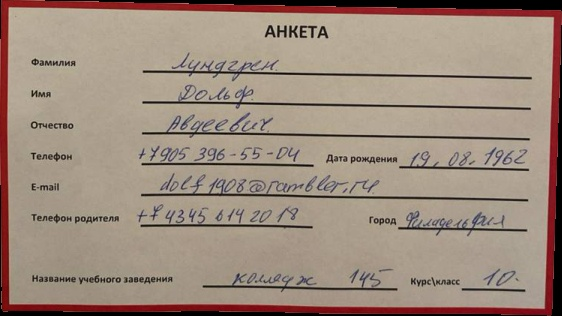 АНКЕТА
Фамилия Лундгрен.
Имя Дольф.
Отчество Авдеевич.
Телефон +7905 396-55-04 Дата рождения 19.08.1962
E-mail dolf1908@rambler.ru
Телефон родителя +7 4345 614 20 18 Город Филадельфия
Название учебного заведения колледж 145 Курс\класс 10.